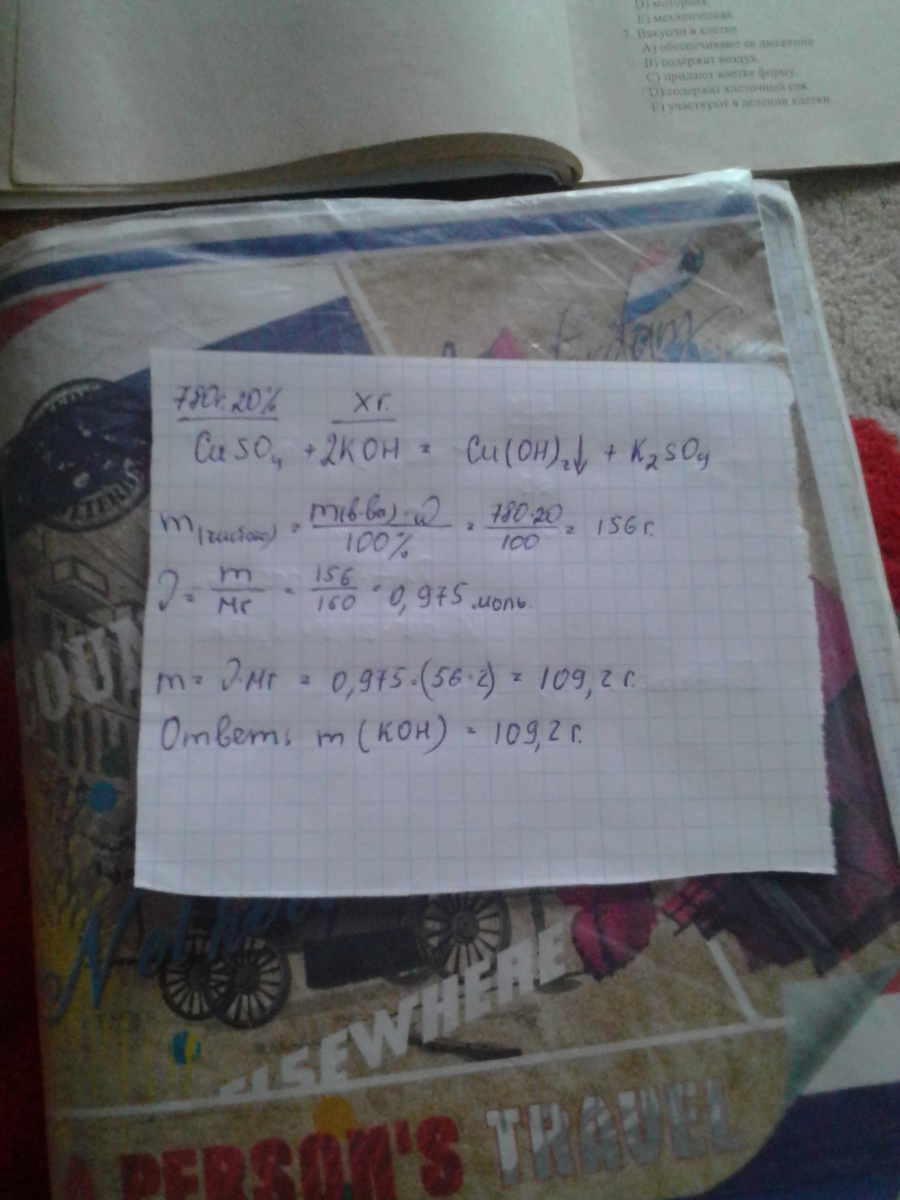 Е) механическая.
7. Вакуоли в клетке
А) обеспечивают ее движение.
В) содержат воздух.
С) придают клетке форму.
D) содержат клеточный сок.
Е) участвуют в делении клетки.
780г. 20% xг.
CuSO₄ + 2KOH = Cu(OH)₂↓ + K₂SO₄
m(чистого) = m(в-ва)·ω / 100% = 780·20 / 100 = 156 г.
ν = m / Mr = 156 / 160 = 0,975 моль.
m = ν·Mr = 0,975·(56·2) = 109,2 г.
Ответь m (KOH) = 109,2 г.
ELSEWHERE
A PERSON'S TRAVEL